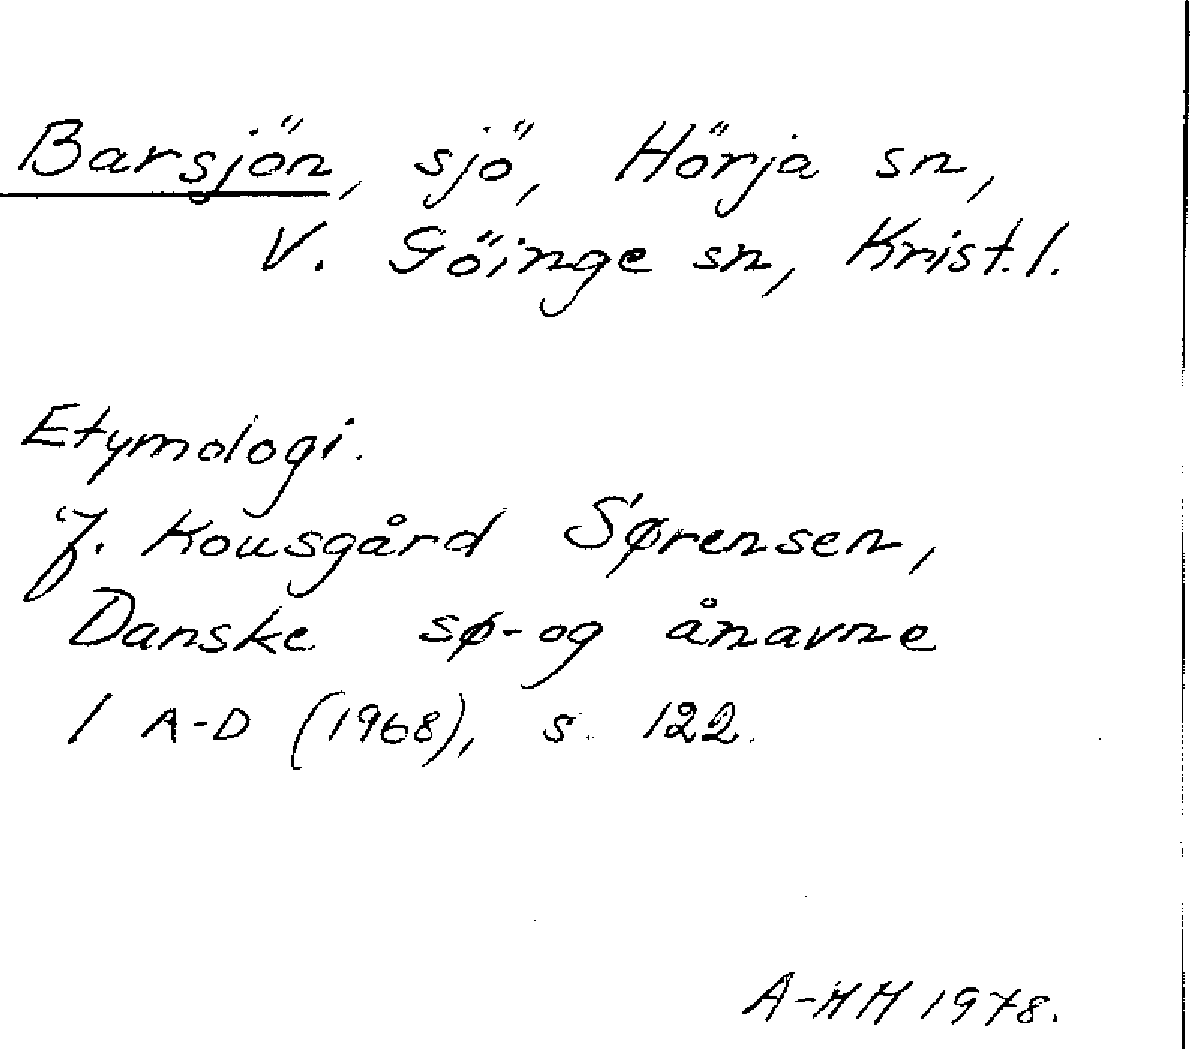 Barsjön, sjö, Hörja sn,
V. Göinge sn, Krist. l.
Etymologi.
J. Kousgård Sørensen,
Danske sø- og ånavne
1 A-D (1968), s. 122.
A-HH 1978.